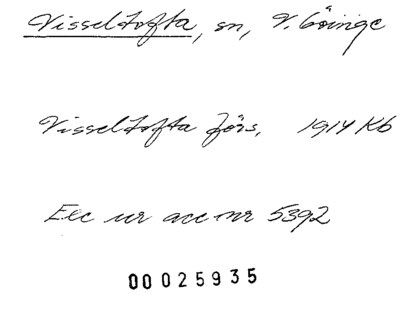 Visseltofta, sn, V. Göinge
Visseltofta förs, 1914 Kb
Exc ur acc nr 5392
00025935